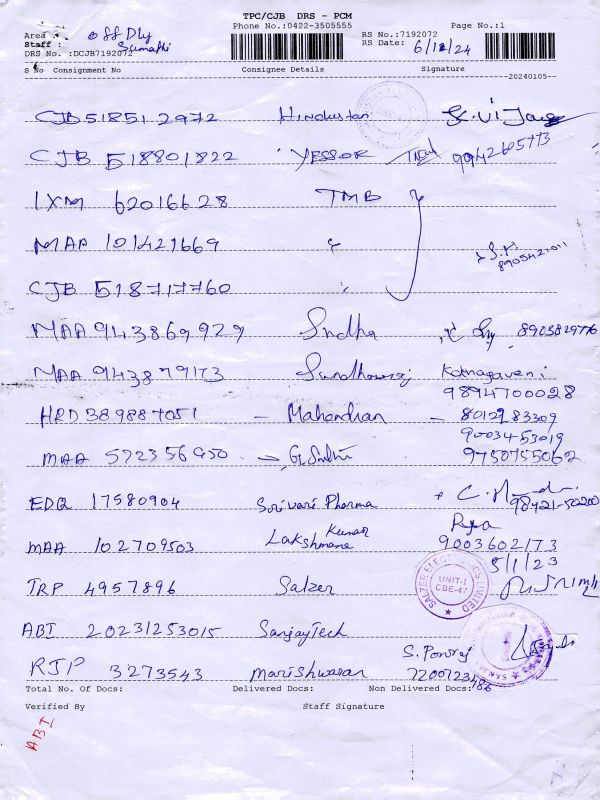 TPC/CJB DRS - PCM
Phone No.:0422-3505555
Page No.:1
Area : Off Dly
Staff :
DRS No. :DCJB7192072
RS No.:7192072
RS Date: 6/12/24
S No Consignment No Consignee Details Signature
20240105
CJB 518512972 Hindustan
CJB 518801822 YESSOK 9942605773
IXM 62016628 TMB
MAA 101421669 "
8905421011
CJB 518717760 "
MAA 943869929 Sudha 8903829776
MAA 943879173
9894700028
HRD 389887051 - Mahendran - 8012983309
9003453019
MAA 572356950 9750755062
EDQ 17580904 Srivari Pharma 98421-50200
MAA 102709503 Lakshmana Kumar 9003602173
5/1/23
TRP 4957896 Salzer
SALZER ELECTRONICS LIMITED
UNIT-I
CBE-47
ABT 20231253015 SanjayTech
RJP 3273543 Marishwaran S. Ponraj
7200723486
Total No. Of Docs: Delivered Docs: Non Delivered Docs:
Verified By Staff Signature
ABT